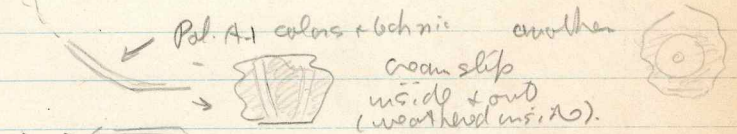 Pal. A-1 colors + technic another
cream slip
inside & out
(weathered inside).